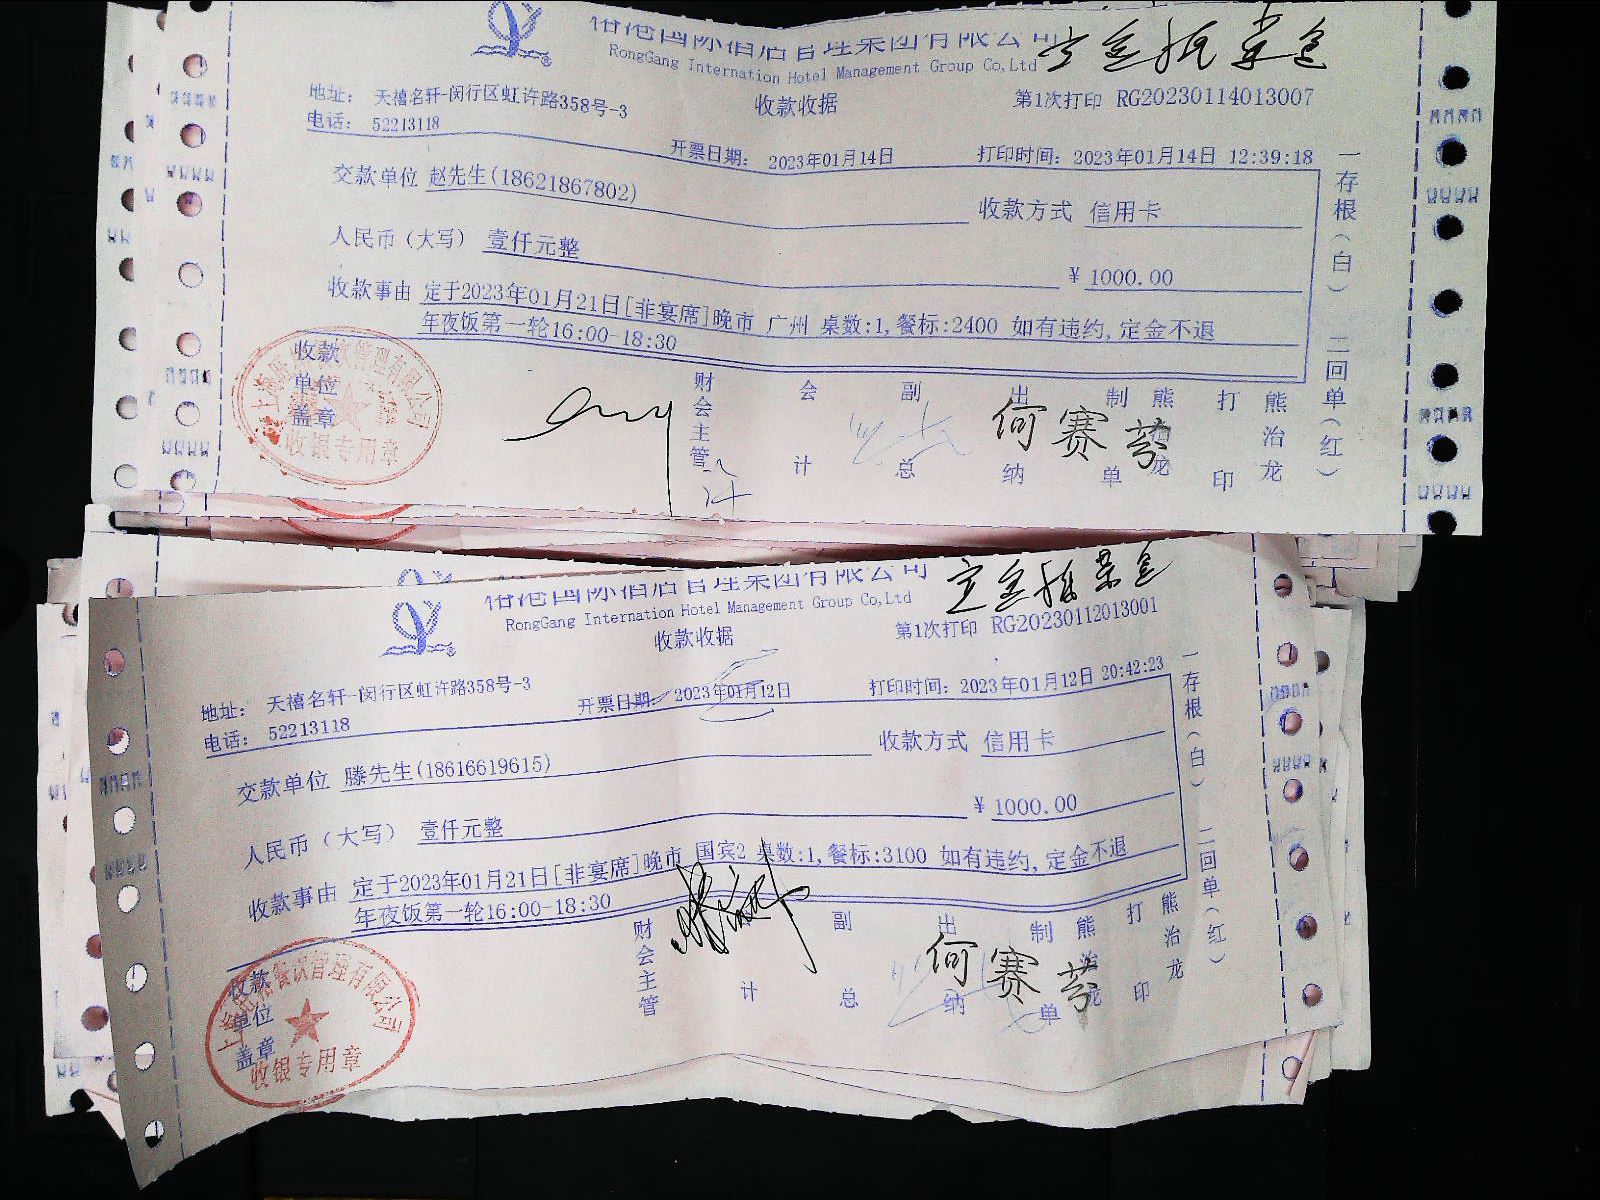 榕港国际酒店管理集团有限公司
RongGang Internation Hotel Management Group Co,Ltd
收款收据
第1次打印 RG20230114013007
地址: 天禧名轩-闵行区虹许路358号-3
电话: 52213118
开票日期: 2023年01月14日
打印时间: 2023年01月14日 12:39:18
交款单位 赵先生(18621867802)
收款方式 信用卡
人民币(大写) 壹仟元整
¥ 1000.00
收款事由 定于2023年01月21日[非宴席]晚市 广州 桌数:1,餐标:2400 如有违约,定金不退
年夜饭第一轮16:00-18:30
收款单位盖章
收银专用章
财会主管
会计
副总
出纳 何赛芬
制单 熊治龙
打印 熊治龙
一存根(白) 二回单(红)
国际酒店管理集团有限公司
RongGang Internation Hotel Management Group Co,Ltd
收款收据
第1次打印 RG20230112013001
地址: 天禧名轩-闵行区虹许路358号-3
电话: 52213118
开票日期: 2023年01月12日
打印时间: 2023年01月12日 20:42:23
交款单位 滕先生(18616619615)
收款方式 信用卡
人民币(大写) 壹仟元整
¥ 1000.00
收款事由 定于2023年01月21日[非宴席]晚市 国宾2 桌数:1,餐标:3100 如有违约,定金不退
年夜饭第一轮16:00-18:30
收款单位盖章
收银专用章
财会主管
计
副总
出纳 何赛芬
制单 熊治龙
打印 熊治龙
一存根(白) 二回单(红)